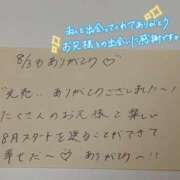 ねぇと出会ってくれてありがとう
お兄様との出会いに感謝です
8/3もありがとう♡
"完売"ありがとうございました〜!
たくさんのお兄様と楽しい
8月スタートを送ることができて
幸せだ〜♡ ありがとう〜!!